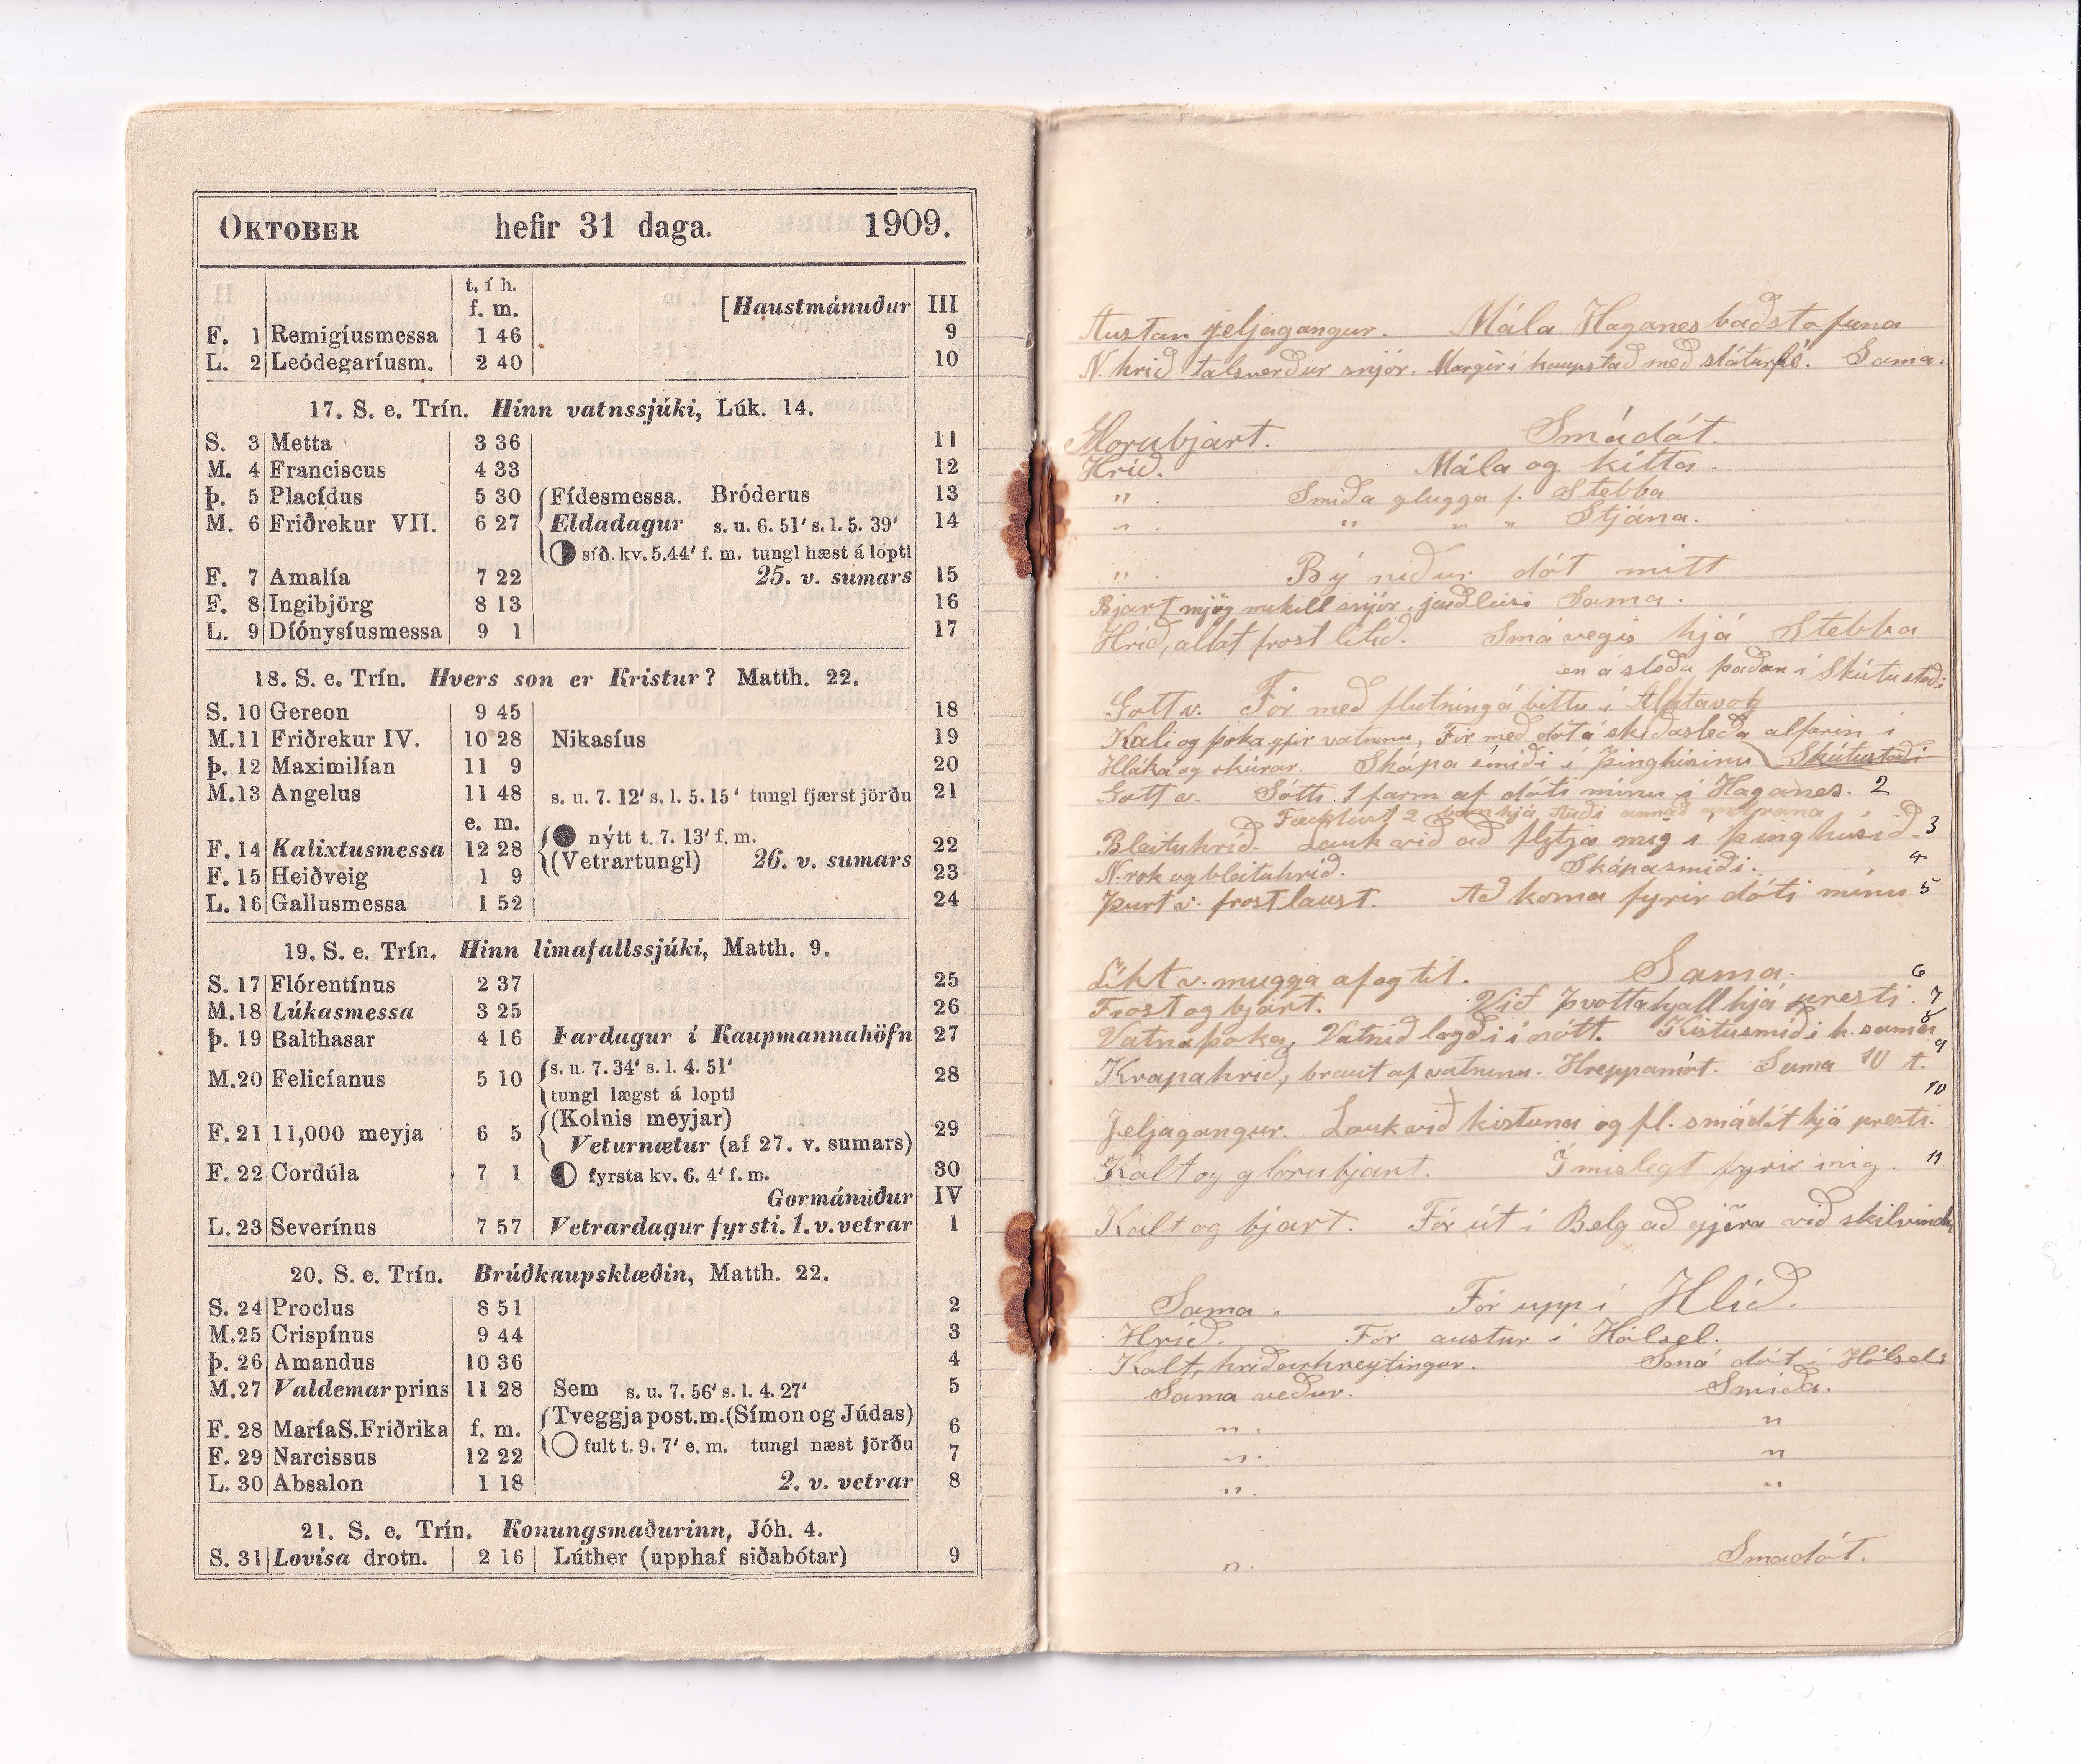 OKTOBER hefir 31 daga. 1909.
t. í h.
f. m. [Haustmánuður III
F. 1 Remigíusmessa 1 46 9
L. 2 Leódegaríusm. 2 40 10
17. S. e. Trín. Hinn vatnssjúki, Lúk. 14.
S. 3 Metta 3 36 11
M. 4 Franciscus 4 33 12
Þ. 5 Placídus 5 30 Fídesmessa. Bróderus 13
M. 6 Friðrekur VII. 6 27 Eldadagur s. u. 6. 51' s. l. 5. 39' 14
síð. kv. 5.44' f. m. tungl hæst á lopti
F. 7 Amalía 7 22 25. v. sumars 15
F. 8 Ingibjörg 8 13 16
L. 9 Díónysíusmessa 9 1 17
18. S. e. Trín. Hvers son er Kristur? Matth. 22.
S. 10 Gereon 9 45 18
M. 11 Friðrekur IV. 10 28 Nikasíus 19
Þ. 12 Maximilían 11 9 20
M. 13 Angelus 11 48 s. u. 7. 12' s. l. 5. 15' tungl fjærst jörðu 21
e. m. nýtt t. 7. 13' f. m.
F. 14 Kalixtusmessa 12 28 (Vetrartungl) 26. v. sumars 22
F. 15 Heiðveig 1 9 23
L. 16 Gallusmessa 1 52 24
19. S. e. Trín. Hinn limafallssjúki, Matth. 9.
S. 17 Flórentínus 2 37 25
M. 18 Lúkasmessa 3 25 26
Þ. 19 Balthasar 4 16 Fardagur í Kaupmannahöfn 27
s. u. 7. 34' s. l. 4. 51'
M. 20 Felicíanus 5 10 28
tungl lægst á lopti
(Kolnis meyjar)
F. 21 11,000 meyja 6 5 Veturnætur (af 27. v. sumars) 29
F. 22 Cordúla 7 1 fyrsta kv. 6. 4' f. m. 30
Gormánuður IV
L. 23 Severínus 7 57 Vetrardagur fyrsti. 1. v. vetrar 1
20. S. e. Trín. Brúðkaupsklæðin, Matth. 22.
S. 24 Proclus 8 51 2
M. 25 Crispínus 9 44 3
Þ. 26 Amandus 10 36 4
M. 27 Valdemar prins 11 28 Sem s. u. 7. 56' s. l. 4. 27' 5
Tveggja post. m. (Símon og Júdas)
F. 28 María S. Friðrika f. m. 6
fult t. 9. 7' e. m. tungl næst jörðu
F. 29 Narcissus 12 22 7
L. 30 Absalon 1 18 2. v. vetrar 8
21. S. e. Trín. Konungsmaðurinn, Jóh. 4.
S. 31 Lovísa drotn. 2 16 Lúther (upphaf siðabótar) 9
Austan jeljagangur. Mála Haganes baðstofuna
N. hríð talsverður snjór. Margir í kaupstað með sláturfé. Sama.
Smádót.
Hríð. Mála og kítta.
" Smíða glugga f. Stebba
" " " " Stjána.
" Bý niður dót mitt
Bjart mjög mikill snjór, jarðleisi Sama.
Hríð, altaf frost lítið. Smávegis hjá Stebba
en á sleða þaðan í Skútustaði
Gott v. Fór með flutning á bittu í Álptavog
Kali og þoka yfir vatninu, Fór með dót á skíðasleða alfarin í
Skútustaði
Hláka og skúrar. Skápasmíði í Þinghúsinu
Gott v. Sótti 1 farm af dóti mínu í Haganes. 2
Bleituhríð. Lauk við að flytja mig í Þinghúsið. 3
N. rok og bleituhríð. Skápasmíði. 4
Þurt v. frostlaust. Að koma fyrir dóti mínu 5
Líkt v. mugga af og til. Sama. 6
Frost og bjart. Við þvottahjall hjá presti. 7
Vatnaþoka, Vatnið lagði í nótt. Kistusmíði h. sama 8
Krapahríð, braut af vatninu. Hreppamót. Sama 10 t. 9
10
Jeljagangur. Lauk við kistuna og fl. smádót hjá presti.
Kalt og glórubjart. Ímislegt fyrir mig. 11
Kalt og bjart. Fór út í Belg að gjöra við skilvindu
Sama. Fór upp í Hlíð.
Hríð. Fór austur í Hólsel.
Kalt, hríðarhreytingur. Smá dót í Hólseli
Sama veður. Smíða.
" "
" "
" "
" Smádót.